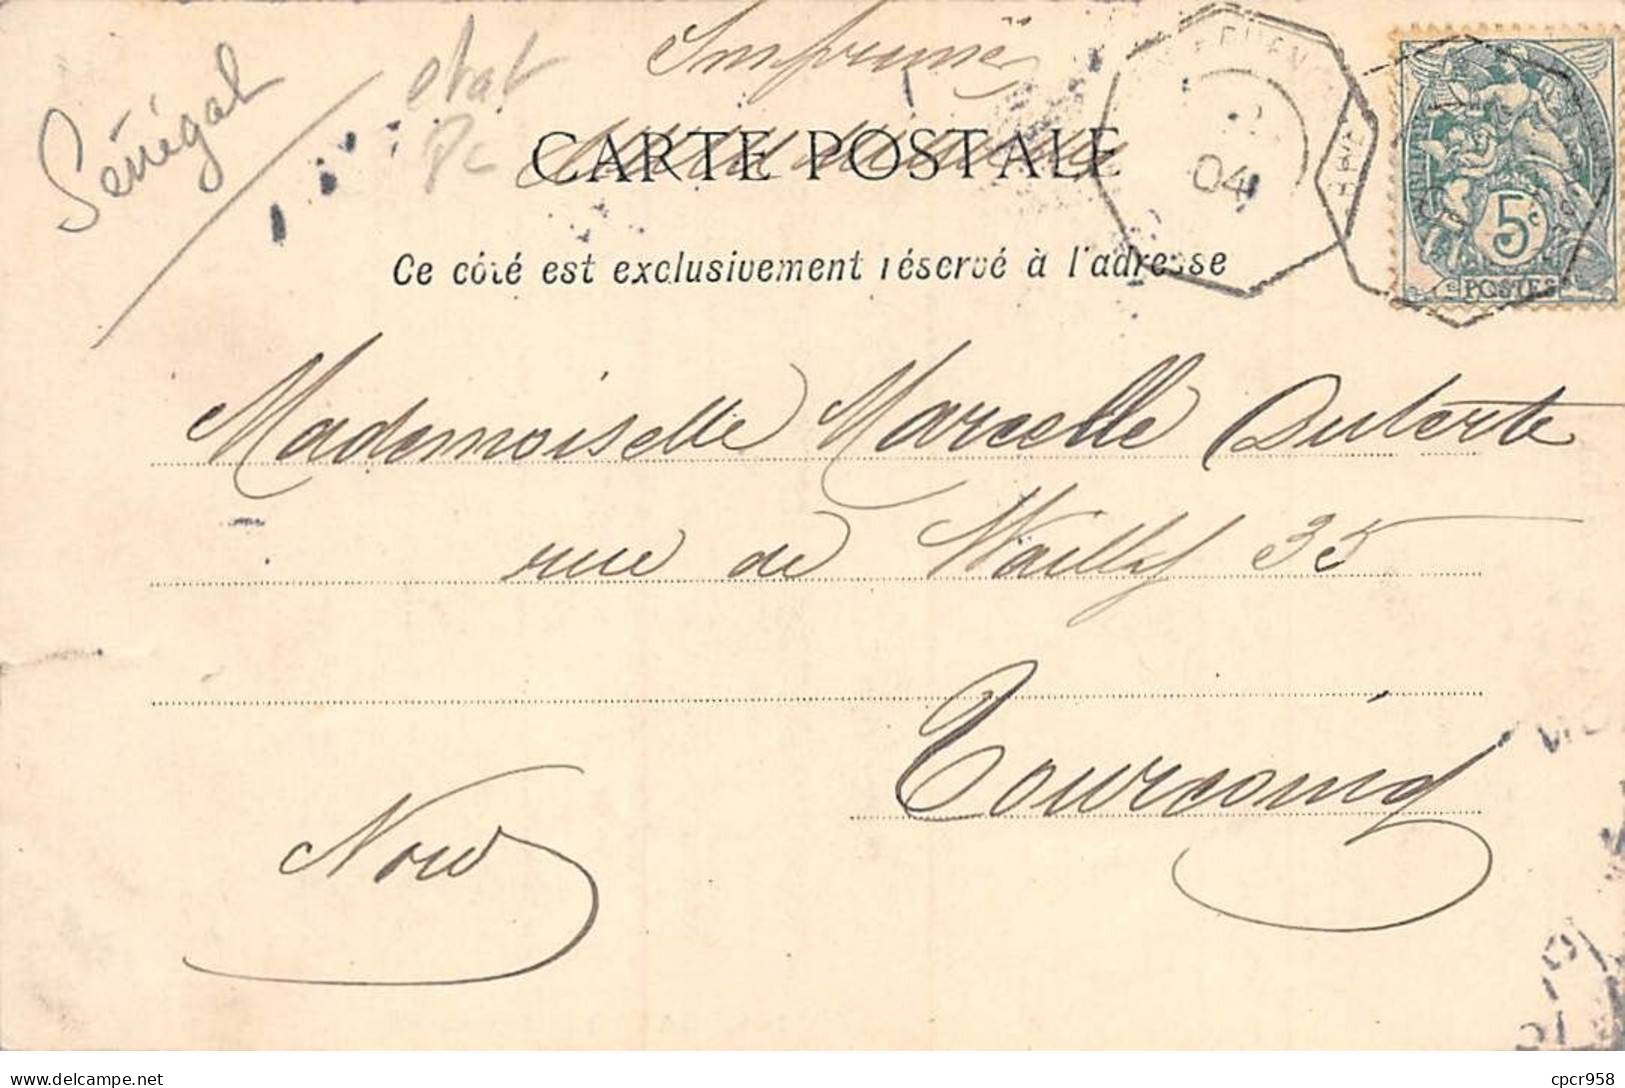 Sénégal
état
Pc
Imprimé
CARTE POSTALE
04
5c
POSTES
Ce côté est exclusivement réservé à l'adresse
Mademoiselle Marcelle Duterte
rue de Wailly 35
Tourcoing
Nord
cpcr958